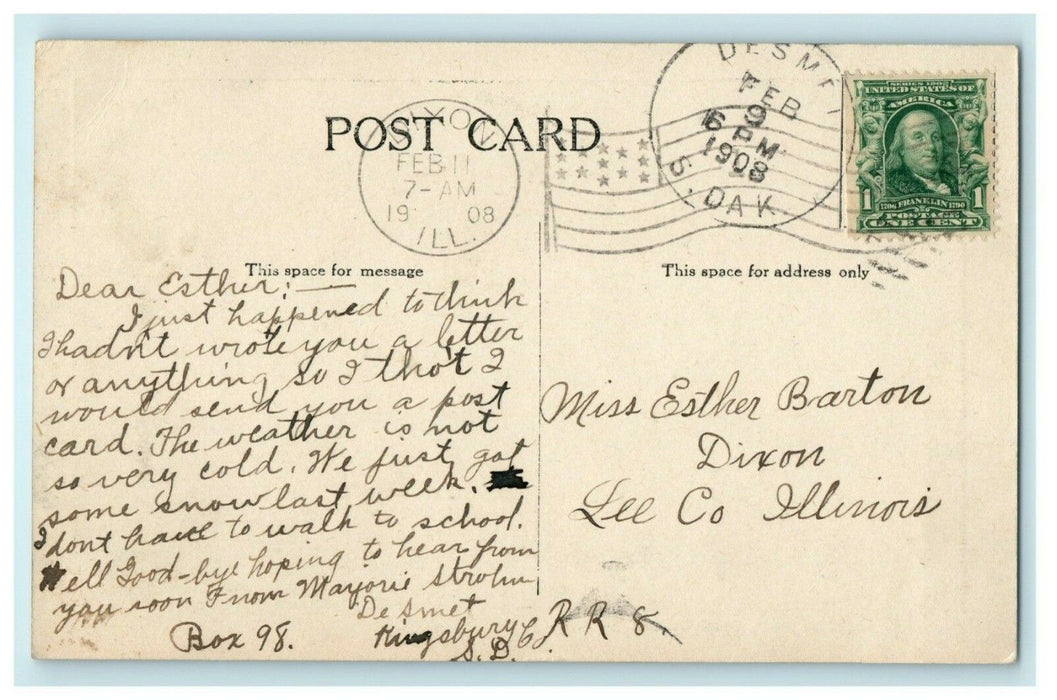 POST CARD
DIXON
FEB 11
7-AM
19 08
ILL.
DESMET
FEB
9
6 PM
1908
S. DAK
UNITED STATES OF
AMERICA
1 FRANKLIN 1
1706 1790
POSTAGE
ONE CENT
This space for message
Dear Esther:—
I just happened to think
I hadn't wrote you a letter
or anything so I tho't I
would send you a post
card. The weather is not
so very cold. We just got
some snow last week.
I dont have to walk to school.
Well Good-bye hoping to hear from
you soon From Marjorie Strohm
De Smet
Box 98. Kingsbury Co
S.D.
This space for address only
Miss Esther Barton
Dixon
Lee Co Illinois
R R 8.